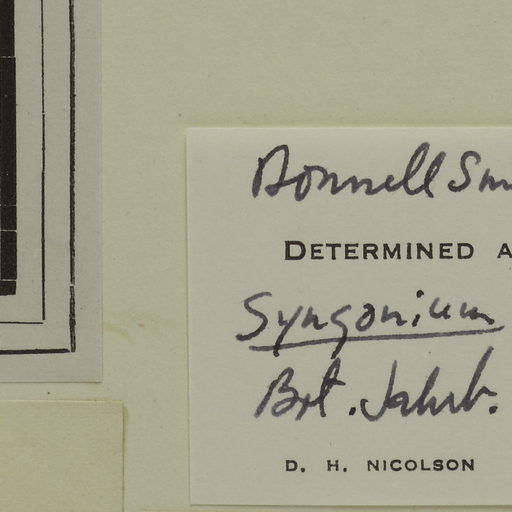 Donnell Sm
DETERMINED A
Syngonium
Bot. Jahrb.
D. H. NICOLSON